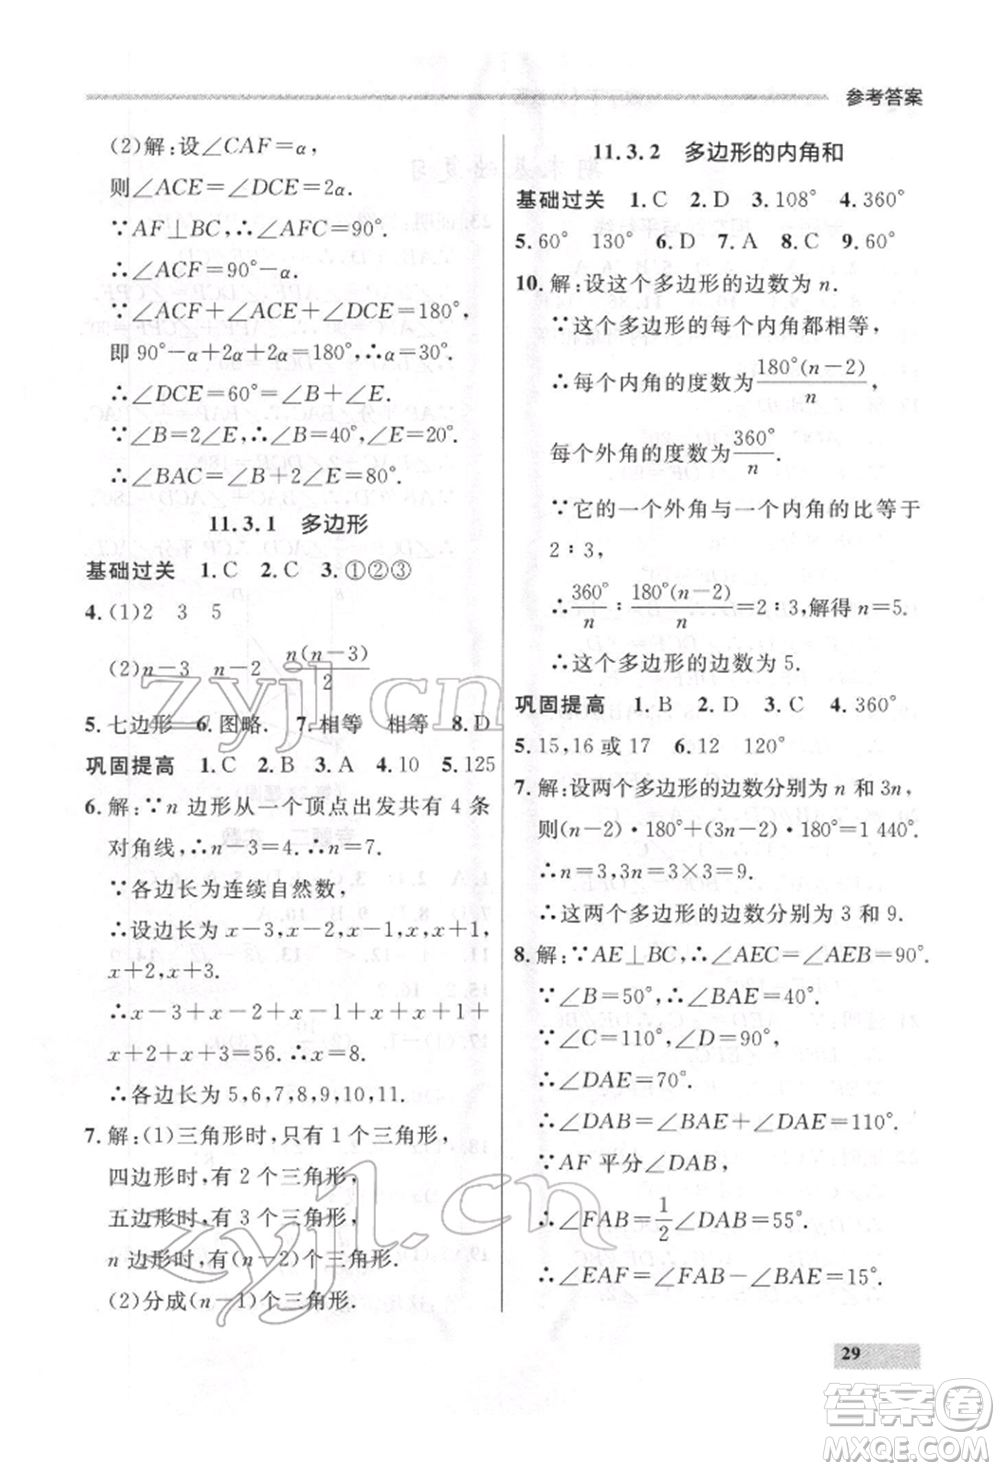 参考答案
(2)解:设∠CAF=α,
则∠ACE=∠DCE=2α.
∵AF⊥BC,∴∠AFC=90°.
∴∠ACF=90°-α.
∴∠ACF+∠ACE+∠DCE=180°,
即 90°-α+2α+2α=180°,∴α=30°.
∴∠DCE=60°=∠B+∠E.
∵∠B=2∠E,∴∠B=40°,∠E=20°.
∴∠BAC=∠B+2∠E=80°.
11.3.1 多边形
基础过关 1.C 2.C 3.①②③
4.(1)2 3 5
(2)n-3 n-2 n(n-3)/2
5.七边形 6.图略. 7.相等 相等 8.D
巩固提高 1.C 2.B 3.A 4.10 5.125
6.解:∵n 边形从一个顶点出发共有 4 条
对角线,∴n-3=4.∴n=7.
∵各边长为连续自然数,
∴设边长为 x-3,x-2,x-1,x,x+1,
x+2,x+3.
∴x-3+x-2+x-1+x+x+1+
x+2+x+3=56.∴x=8.
∴各边长为 5,6,7,8,9,10,11.
7.解:(1)三角形时,只有 1 个三角形,
四边形时,有 2 个三角形,
五边形时,有 3 个三角形,
n 边形时,有(n-2)个三角形.
(2)分成(n-1)个三角形.
11.3.2 多边形的内角和
基础过关 1.C 2.D 3.108° 4.360°
5.60° 130° 6.D 7.A 8.C 9.60°
10.解:设这个多边形的边数为 n.
∵这个多边形的每个内角都相等,
∴每个内角的度数为180°(n-2)/n,
每个外角的度数为360°/n.
∵一个外角与一个内角的比等于
2∶3,
∴360°/n∶180°(n-2)/n=2∶3,解得 n=5.
∴这个多边形的边数为 5.
巩固提高 1.B 2.D 3.C 4.360°
5.15,16 或 17 6.12 120°
7.解:设两个多边形的边数分别为 n 和 3n,
则(n-2)·180°+(3n-2)·180°=1 440°.
∴n=3,3n=3×3=9.
∴这两个多边形的边数分别为 3 和 9.
8.解:∵AE⊥BC,∴∠AEC=∠AEB=90°.
∵∠B=50°,∴∠BAE=40°.
∵∠C=110°,∠D=90°,
∴∠DAE=70°.
∴∠DAB=∠BAE+∠DAE=110°.
∵AF 平分∠DAB,
∴∠FAB=1/2∠DAB=55°.
∴∠EAF=∠FAB-∠BAE=15°.
29
zyjl.cn
zyjl.cn
答案圈
MXQE.COM